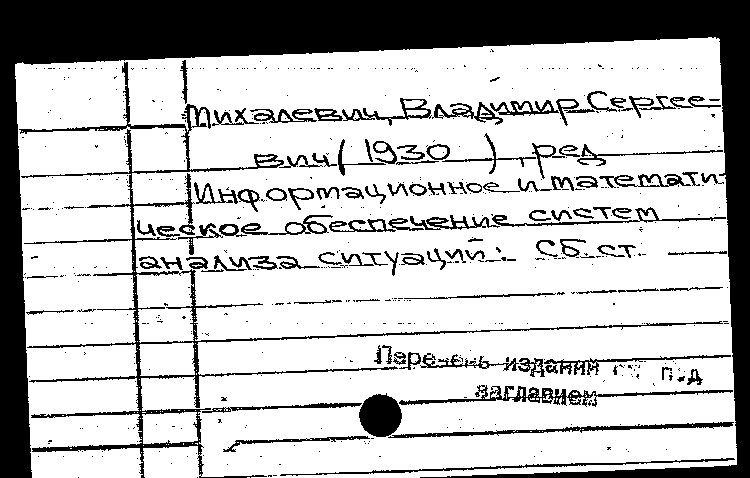 Михалевич, Владимир Сергее=
вич (1930 ), ред
Информационное и математи-
ческое обеспечение систем
анализа ситуаций: Сб. ст.
Перечень изданий см под
заглавием